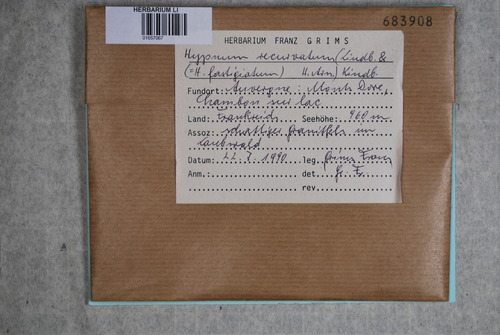 HERBARIUM LI
683908
HERBARIUM FRANZ GRIMS
Hypnum recurvatum (Lindb. &
(=H. fastigiatum) H. Arn.) Kindb.
Fundort: Auvergne: Monts Dore,
Chambon sur lac
Land: Frankreich Seehöhe: 960 m
Assoz: schattiger Granitfels im
Laubwald
Datum: 1990 leg. Grims Franz
Anm. det. G. F.
rev.